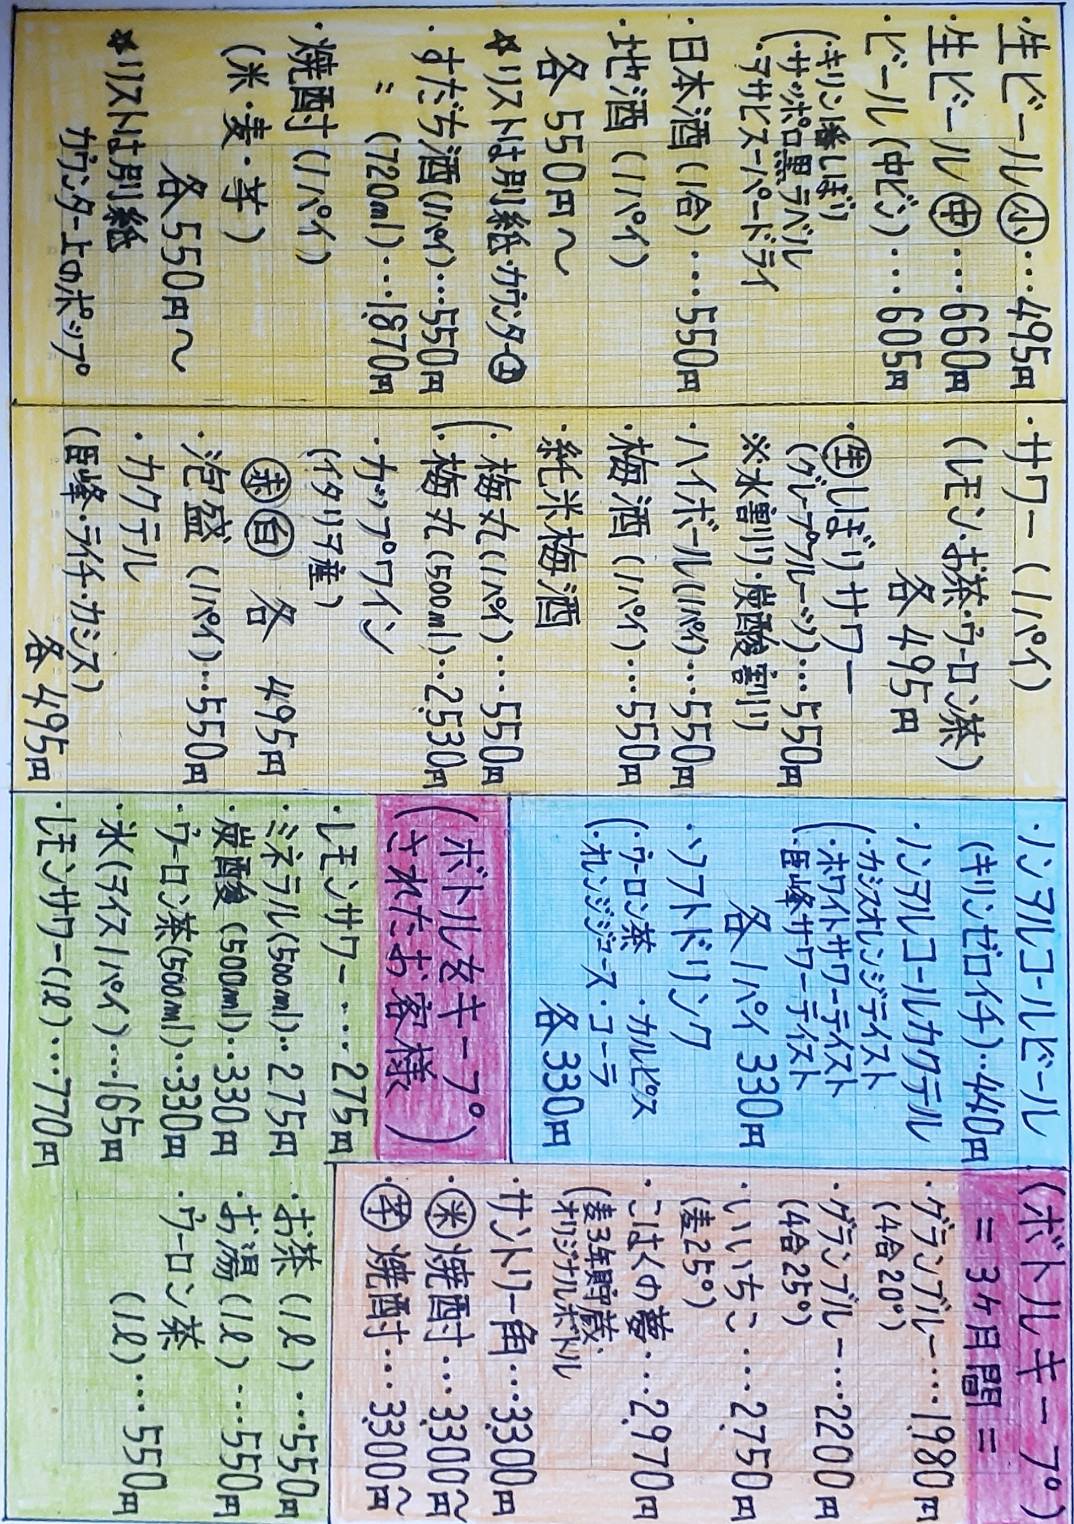 生ビール㊥小…495円
生ビール㊥…660円
ビール(中ビン)…605円
(・キリン一番しぼり
・サッポロ黒ラベル
・アサヒスーパードライ
・日本酒(1合)…550円
・地酒(1パイ)
各550円〜
☆リストは別紙・カウンター上
・すだち酒(1パイ)…550円
〃 (720ml)…1,870円
・焼酎(1パイ)
(米・麦・芋)
各550円〜
☆リストは別紙
カウンター上のポップ
・サワー(1パイ)
(レモン・お茶・ウーロン茶)
各495円
・生しぼりサワー
(グレープフルーツ)…550円
※水割り・炭酸割り
・ハイボール(1パイ)…550円
・梅酒(1パイ)…550円
・純米梅酒
(・梅丸(1パイ)…550円
・梅丸(500ml)…2,530円
・カップワイン
(イタリア産)
赤 白 各 495円
・泡盛(1パイ)…550円
・カクテル
(巨峰・ライチ・カシス)
各495円
・ノンアルコールビール
(キリンゼロイチ)…440円
・ノンアルコールカクテル
(・カシスオレンジテイスト
・ホワイトサワーテイスト
・巨峰サワーテイスト
各1パイ 330円
・ソフトドリンク
(・ウーロン茶 ・カルピス
・オレンジジュース・コーラ
各330円
(ボトルをキープ
されたお客様)
・レモンサワー…275円
・ミネラル(500ml)…275円
・炭酸(500ml)…330円
・ウーロン茶(500ml)…330円
・氷(アイス1パイ)…165円
・レモンサワー(1ℓ)…770円
・お茶(1ℓ)…550円
・お湯(1ℓ)…550円
・ウーロン茶
(1ℓ)…550円
(ボトルキープ)
=3ケ月間=
・グランブルー…1,980円
(4合20°)
・グランブルー…2200円
(4合25°)
・いいちこ…2,750円
(麦25°)
・こはくの夢…2,970円
(麦3年貯蔵・
オリジナルボトル
・サントリー角…3,300円
・米焼酎…3,300〜円
・芋焼酎…3,300〜円